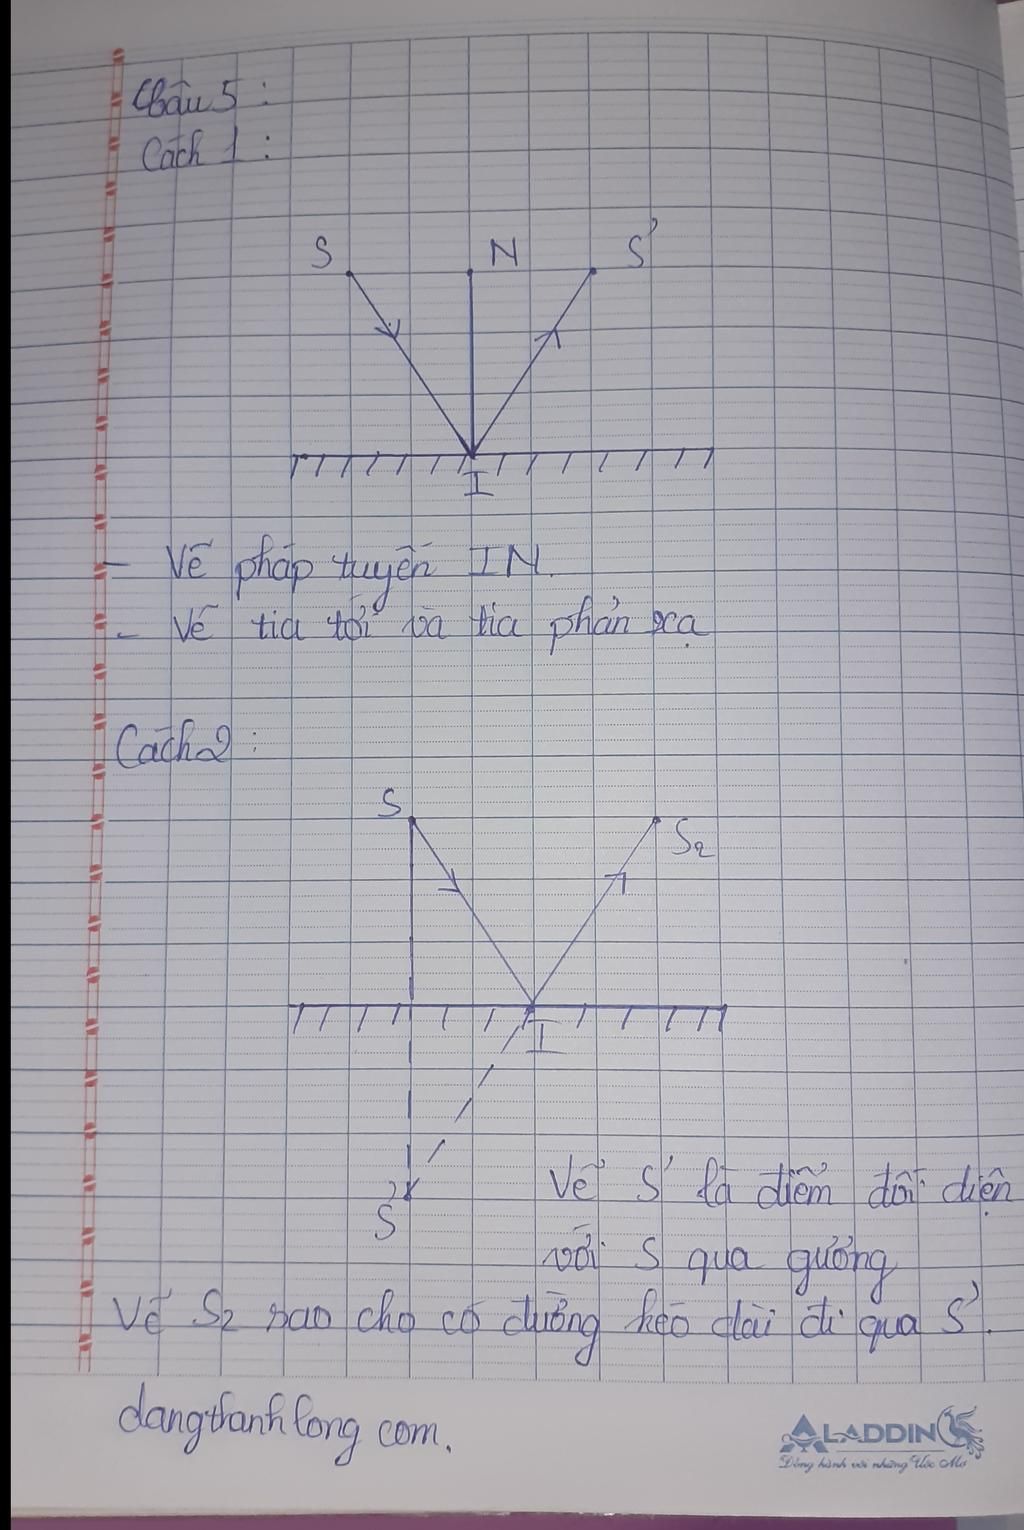 Câu 5 :
Cách 1 :
S N S'
I
- Vẽ pháp tuyến IN.
- Vẽ tia tới và tia phản xạ
Cách 2 :
S S2
I
S'
Vẽ S' là điểm đối diện
với S qua gương
Vẽ S2 sao cho có đường kéo dài đi qua S'.
dangthanhlong com.
ALADDIN
Đồng hành với những Ước Mơ